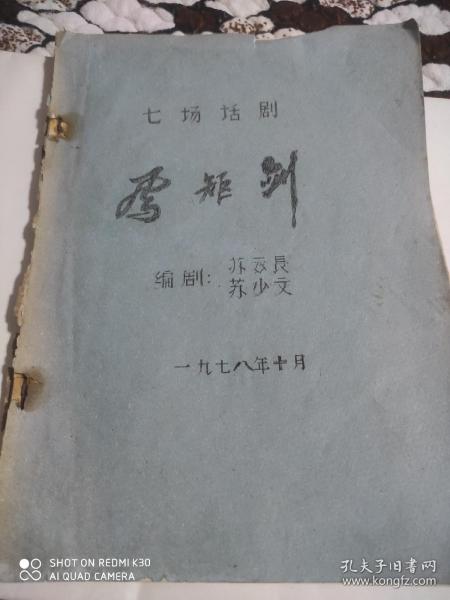 七场话剧
矩剑
编剧：
苏云良
苏少文
一九七八年十月
SHOT ON REDMI K30
AI QUAD CAMERA
孔夫子旧书网
www.kongfz.com